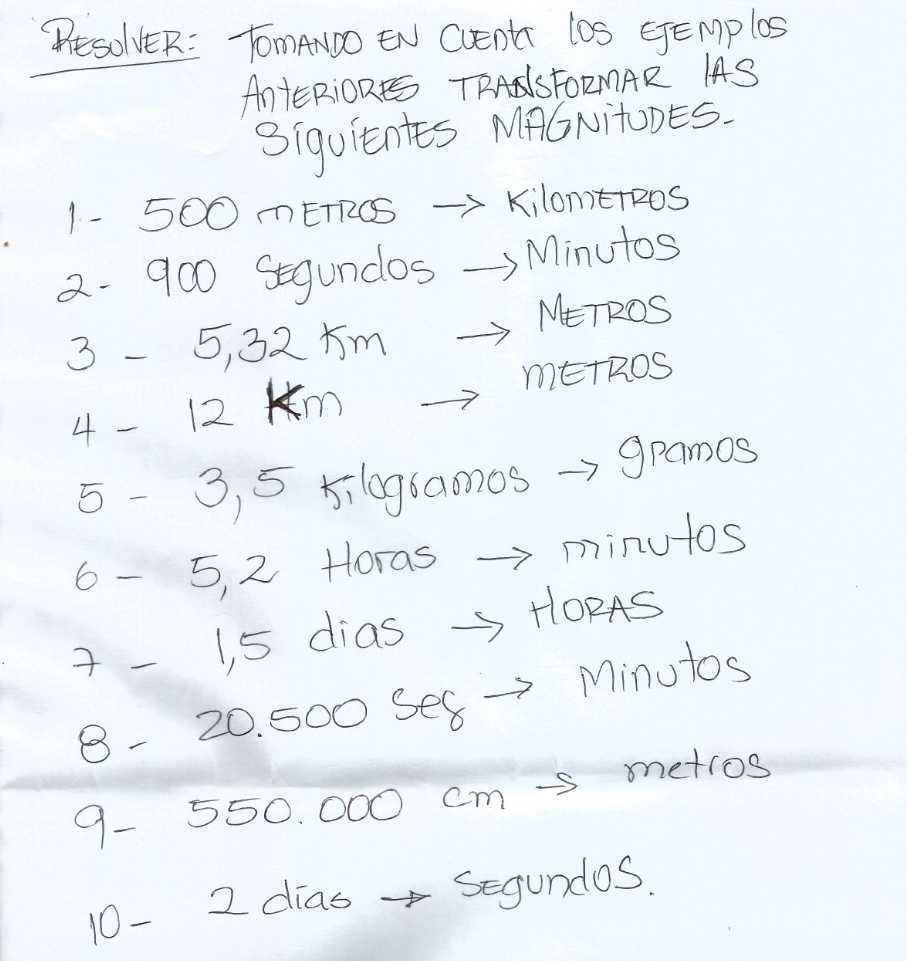 RESOLVER: TOMANDO EN CUENTA los EJEMPlos
ANTERIORES TRANSFORMAR lAS
Siguientes MAGNitUDES-
1- 500 mETROS → KiloMETROS
2- 900 SEgundos → Minutos
3 - 5,32 Km → METROS
4 - 12 Km → mETROS
5 - 3,5 Kilogramos → gramos
6 - 5,2 Horas → minutos
7 - 1,5 dias → HORAS
8 - 20.500 Seg → Minutos
9- 550.000 cm → metros
10- 2 días → SEgundos.